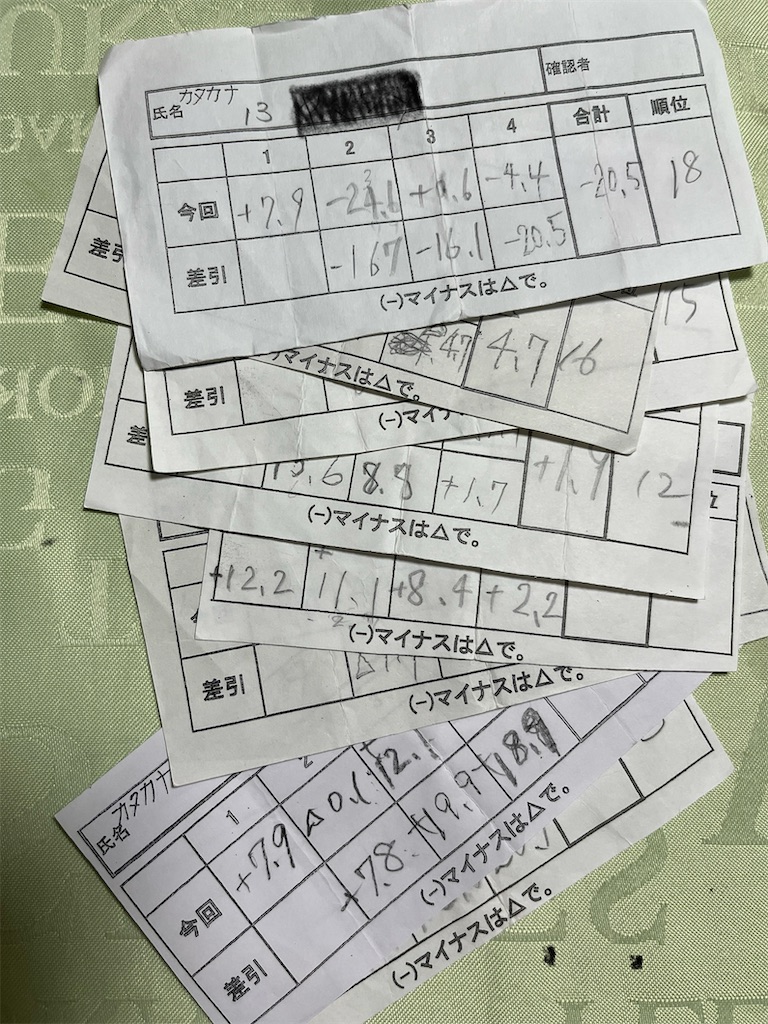 氏名 カタカナ 13 確認者
1 2 3 4 合計 順位
今回 +7.9 -4.4 -20.5 18
差引 -16.7 -16.1 -20.5
(-)マイナスは△で。
15
4.7 4.7 16
マイナスは△で。
差引
(-)マイナ
差
8.8 +1.7 +1.9 12
(-)マイナスは△で。
+12.2 11.1 +8.4 +2.2
(-)マイナスは△で。
差引
(-)マイナスは△で。
氏名 カタカナ
1 2
今回 +7.9 △0.1
差引 +7.8 +19.9 +18.9
(-)マイナスは△で。
(-)マイナスは△で。